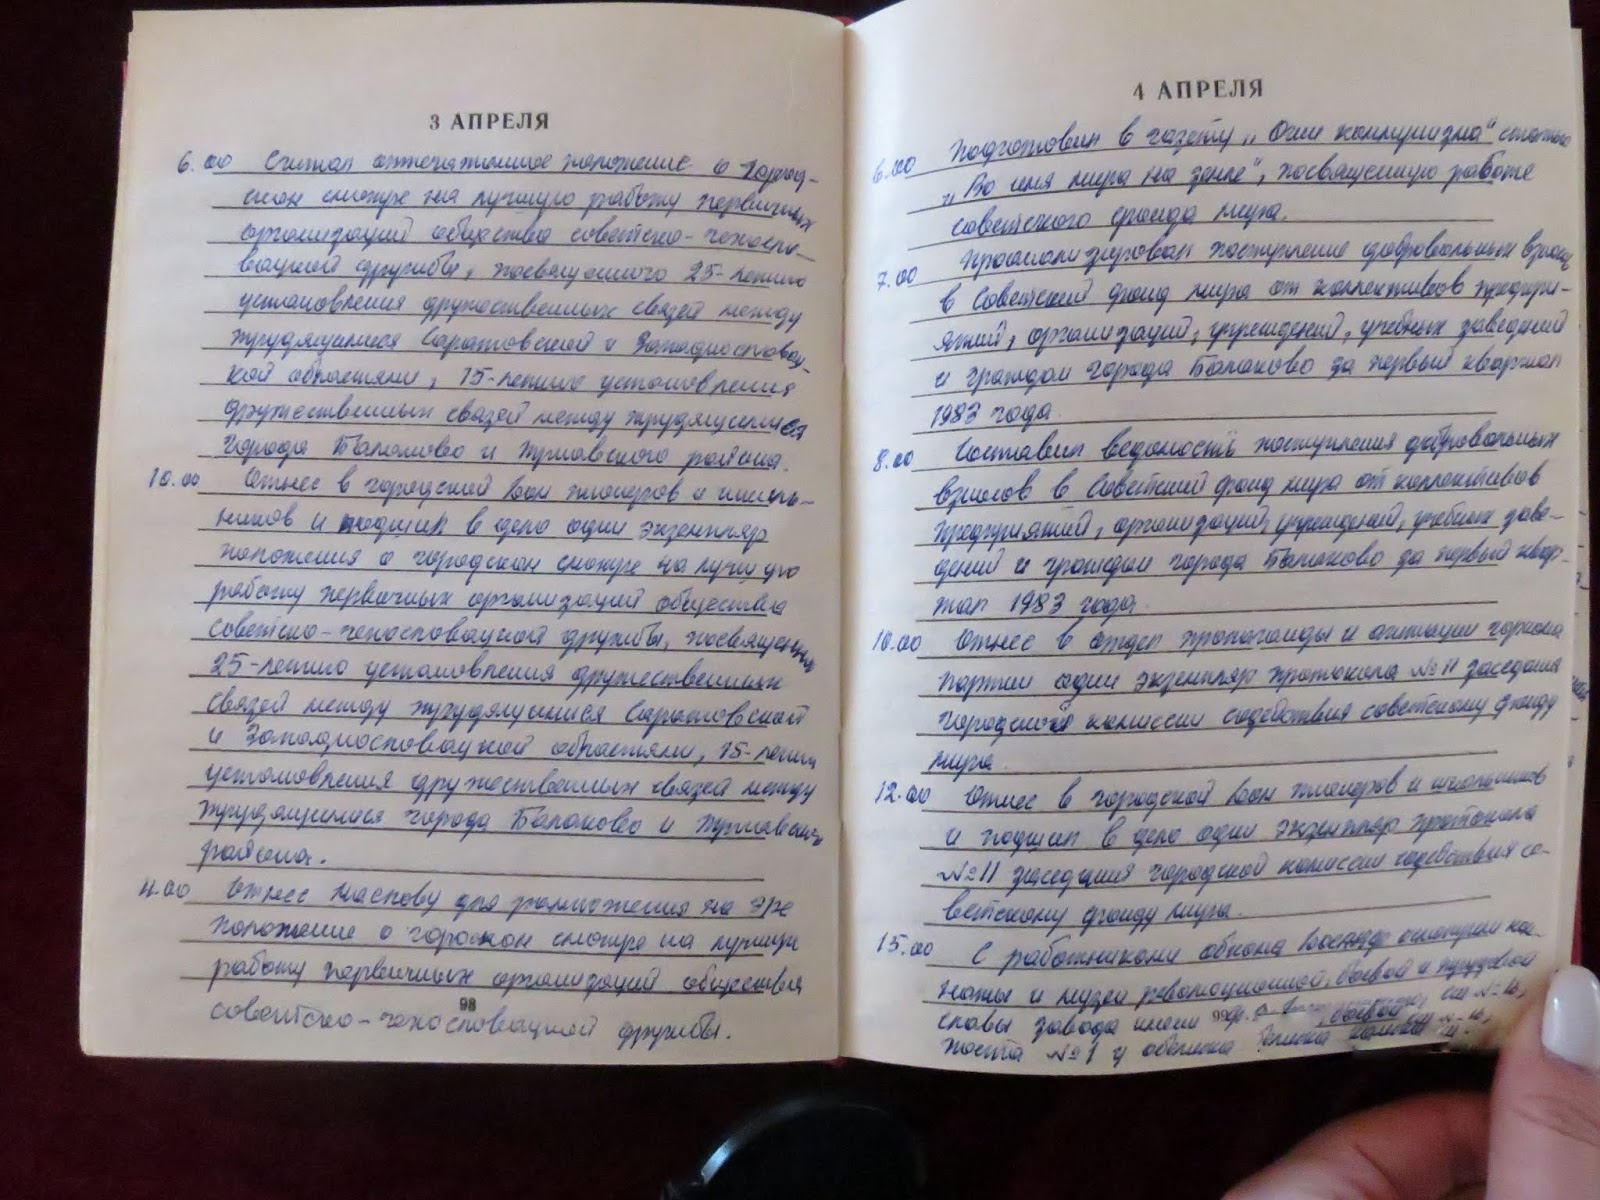 3 АПРЕЛЯ
6.00 Считал отпечатанное положение о город-
ском смотре на лучшую работу первичных
организаций общества советско-чехосло-
вацкой дружбы, посвященного 25-летию
установления дружественных связей между
трудящимися Саратовской и Западнословац-
кой областями, 15-летию установления
дружественных связей между трудящимися
города Балаково и Трнавского района.
10.00 Отнес в городской Дом пионеров и школь-
ников и подшил в дело один экземпляр
положения о городском смотре на лучшую
работу первичных организаций общества
советско-чехословацкой дружбы, посвященном
25-летию установления дружественных
связей между трудящимися Саратовской
и Западнословацкой областями, 15-летию
установления дружественных связей между
трудящимися города Балаково и Трнавского
района.
Отнес для размножения на эре
положение о городском смотре на лучшую
работу первичных организаций общества
98
советско-чехословацкой дружбы.
4 АПРЕЛЯ
6.00 Подготовил в газету „Огни коммунизма" статью
„Во имя мира на земле", посвященную работе
советского фонда мира.
7.00 Проанализировал поступление добровольных взносов
в Советский фонд мира от коллективов предпри-
ятий, организаций, учреждений, учебных заведений
и граждан города Балаково за первый квартал
1983 года.
8.00 Составил ведомость поступления добровольных
взносов в Советский фонд мира от коллективов
предприятий, организаций, учреждений, учебных заве-
дений и граждан города Балаково за первый квар-
тал 1983 года.
10.00 Отнес в отдел пропаганды и агитации горкома
партии один экземпляр протокола №11 заседания
городской комиссии содействия советскому фонду
мира.
12.00 Отнес в городской Дом пионеров и школьников
и подшил в дело один экземпляр протокола
№11 заседания городской комиссии содействия со-
ветскому фонду мира.
15.00 С работниками обкома осмотрели ком-
наты и музеи революционной, боевой и трудовой
славы завода имени 99
поста №1 у обелиска